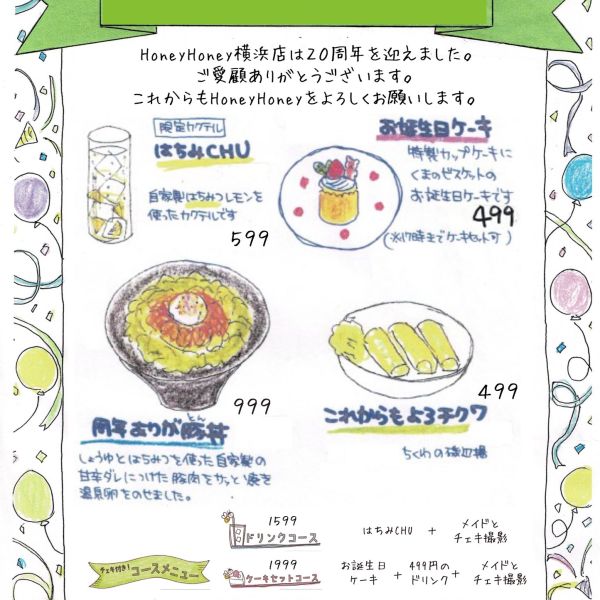 HoneyHoney横浜店は20周年を迎えました。
ご愛顧ありがとうございます。
これからもHoneyHoneyをよろしくお願いします。
限定カクテル
はちみCHU
自家製はちみつレモンを
使ったカクテルです
599
お誕生日ケーキ
特製カップケーキに
くまのビスケットの
お誕生日ケーキです
499
(※17時までケーキセット可)
999
周年ありが豚丼
とん
しょうゆとはちみつを使った自家製の
甘辛ダレにつけた豚肉をサッと焼き
温泉卵をのせました。
499
これからもよろチクワ
ちくわの磯辺揚
1599
ドリンクコース
はちみCHU + メイドと
チェキ撮影
チェキ付き!
コースメニュー
1999
ケーキセットコース
お誕生日
ケーキ + 499円の
ドリンク + メイドと
チェキ撮影